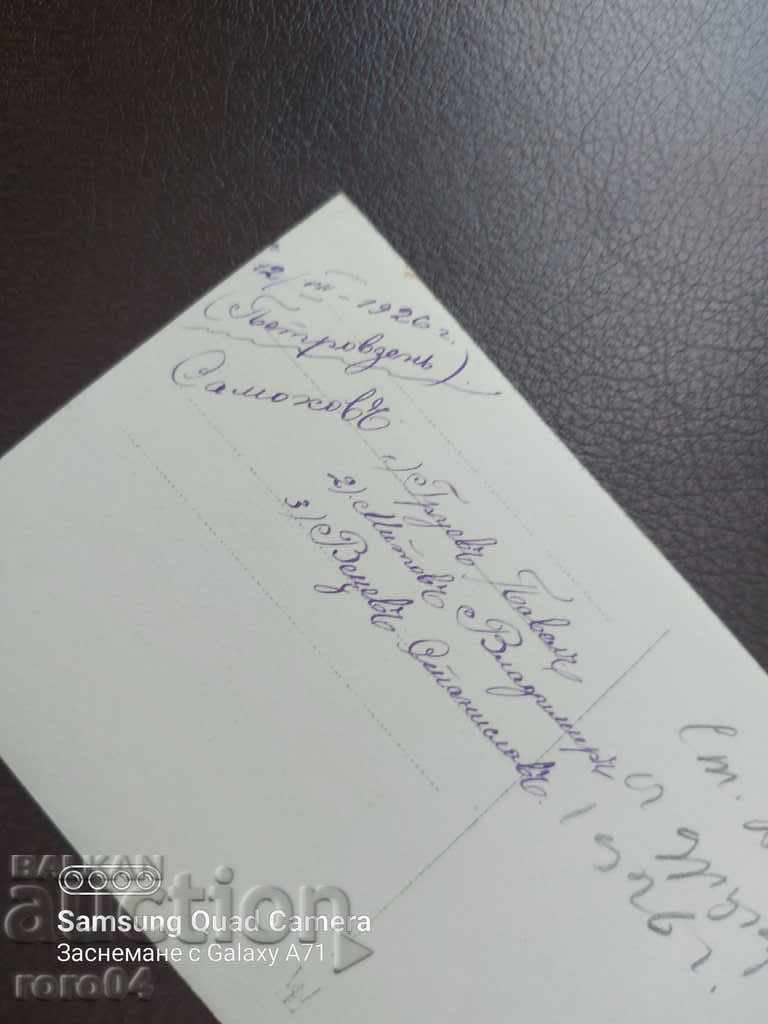 12/VII-1926 г.
(Петровдень)
Самоковъ
1) Груевъ Павелъ
2) Митовъ Владимиръ
3) Вецевъ Станиславъ.
Ст.
BALKAN
auction
Samsung Quad Camera
Заснемане с Galaxy A71
roro04